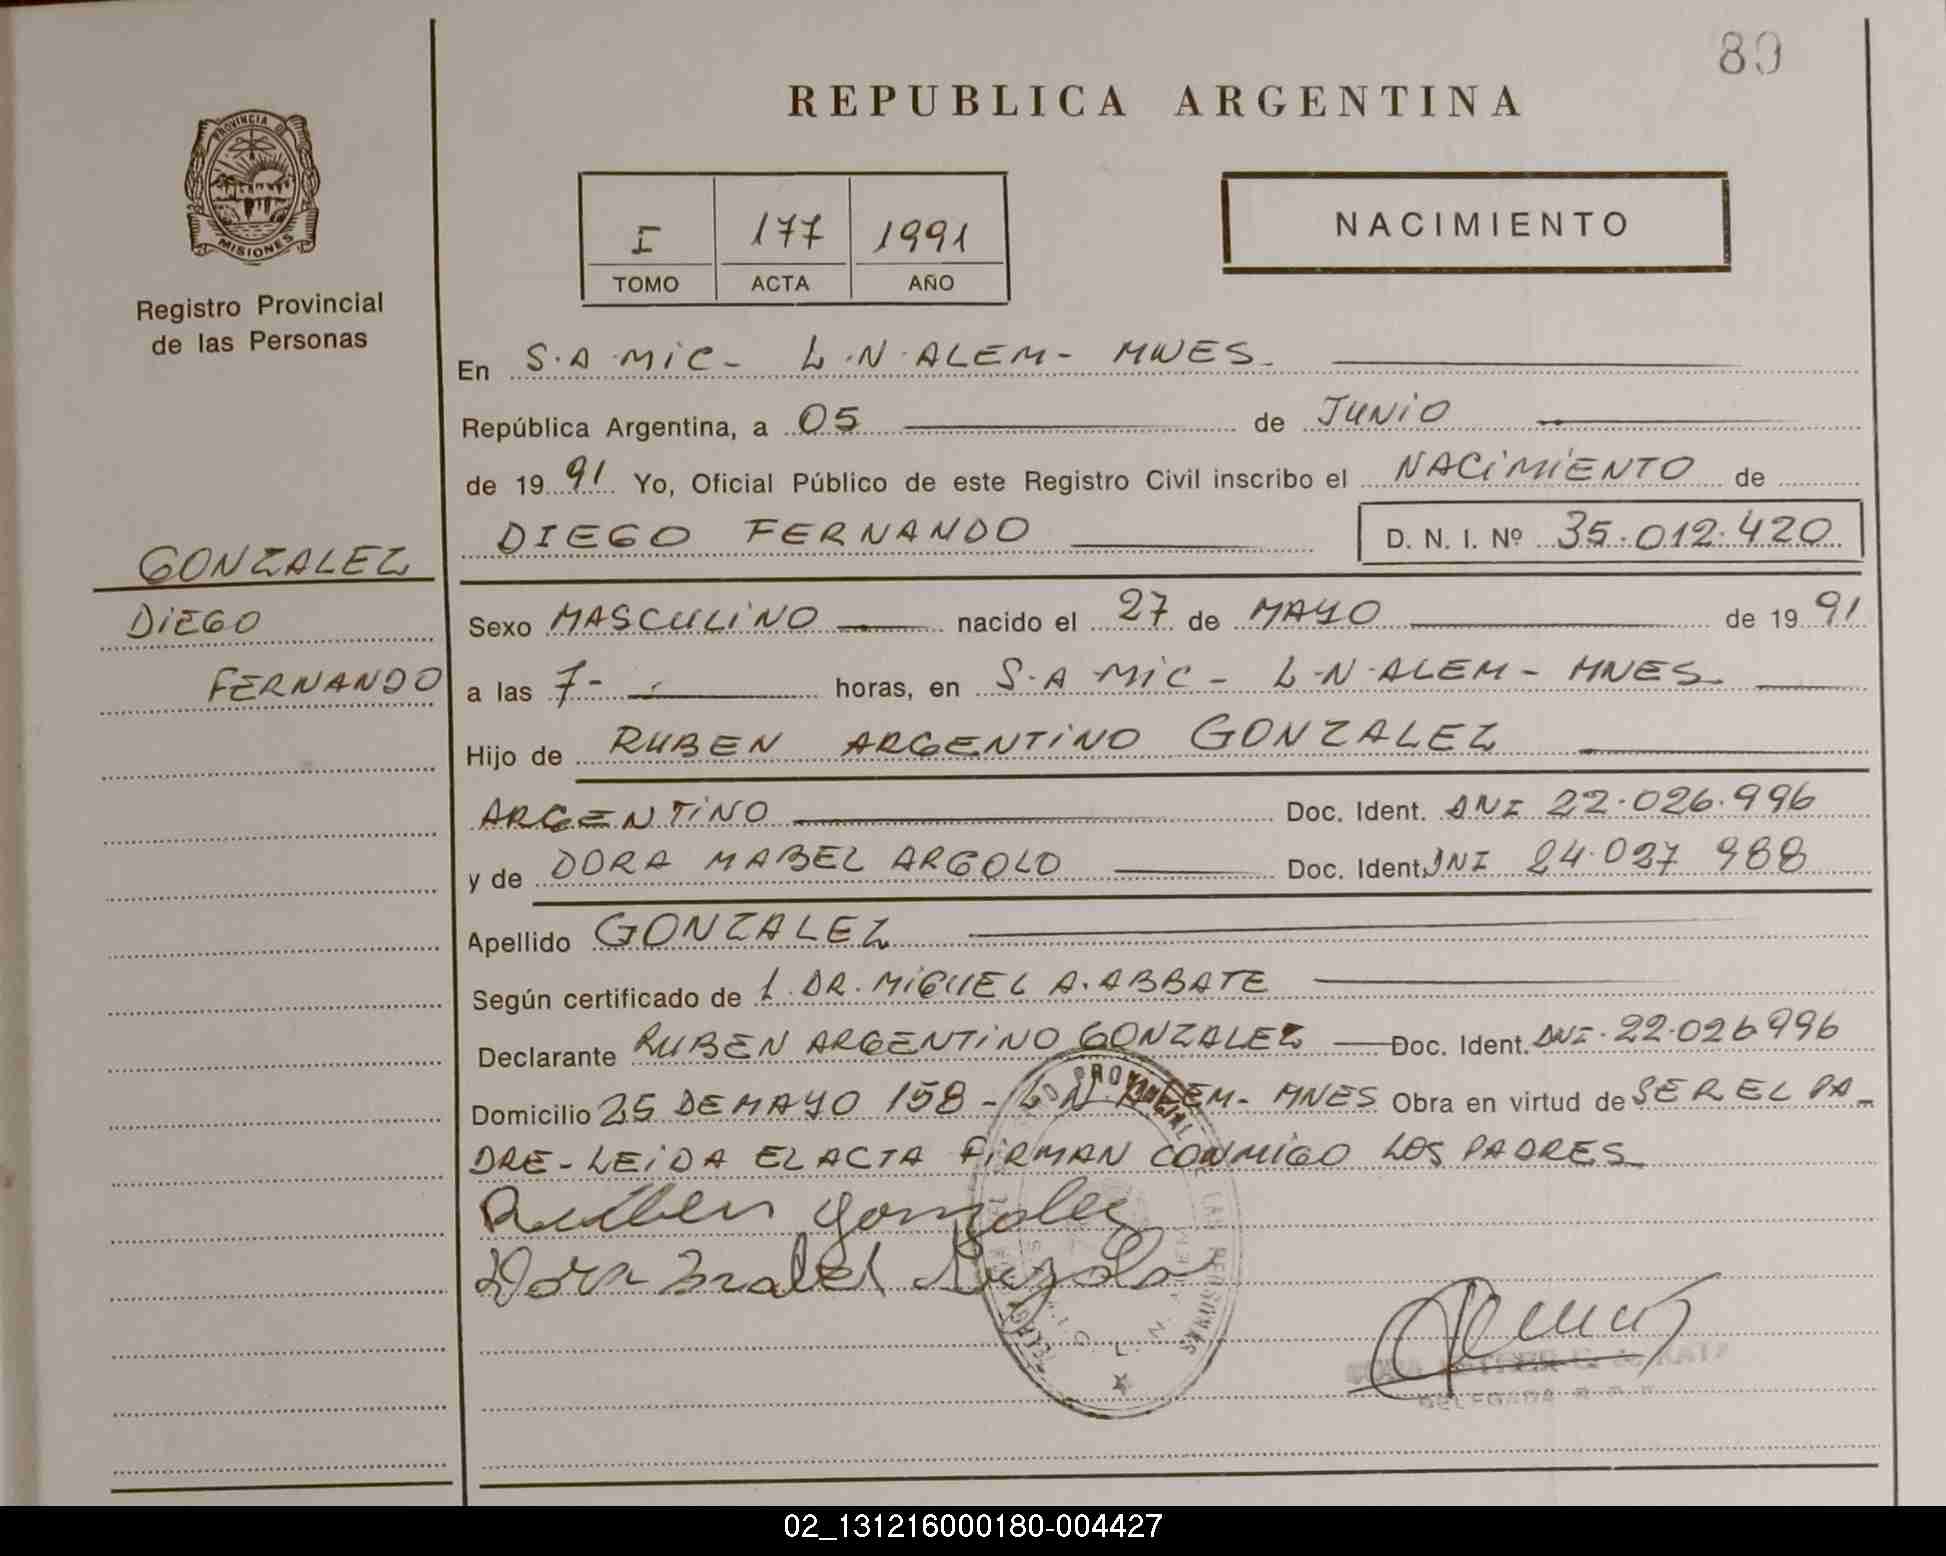 89
REPUBLICA ARGENTINA
PROVINCIA DE
MISIONES
Registro Provincial
de las Personas
I 177 1991
TOMO ACTA AÑO
NACIMIENTO
En S.A.MIC- L.N.ALEM- MNES.
República Argentina, a 05 de JUNIO
de 1991 Yo, Oficial Público de este Registro Civil inscribo el NACIMIENTO de
DIEGO FERNANDO D. N. I. Nº 35.012.420
GONZALEZ
DIEGO
FERNANDO
Sexo MASCULINO nacido el 27 de MAYO de 1991
a las 7- horas, en S.A MIC - L-N-ALEM - MNES.
Hijo de RUBEN ARGENTINO GONZALEZ
ARGENTINO Doc. Ident. DNI 22.026.996
y de DORA MABEL ARGOLO Doc. Ident. DNI 24.027 988
Apellido GONZALEZ
Según certificado de 1. DR. MIGUEL A. ABBATE
Declarante RUBEN ARGENTINO GONZALEZ Doc. Ident. DNI. 22.026996
Domicilio 25 DE MAYO 158 - L N ALEM- MNES Obra en virtud de SER EL PA-
DRE - LEIDA EL ACTA FIRMAN CONMIGO LOS PADRES
Ruben Gonzalez
Dora Mabel Argolo
PROVINCIAL DE LAS PERSONAS
02_131216000180-004427